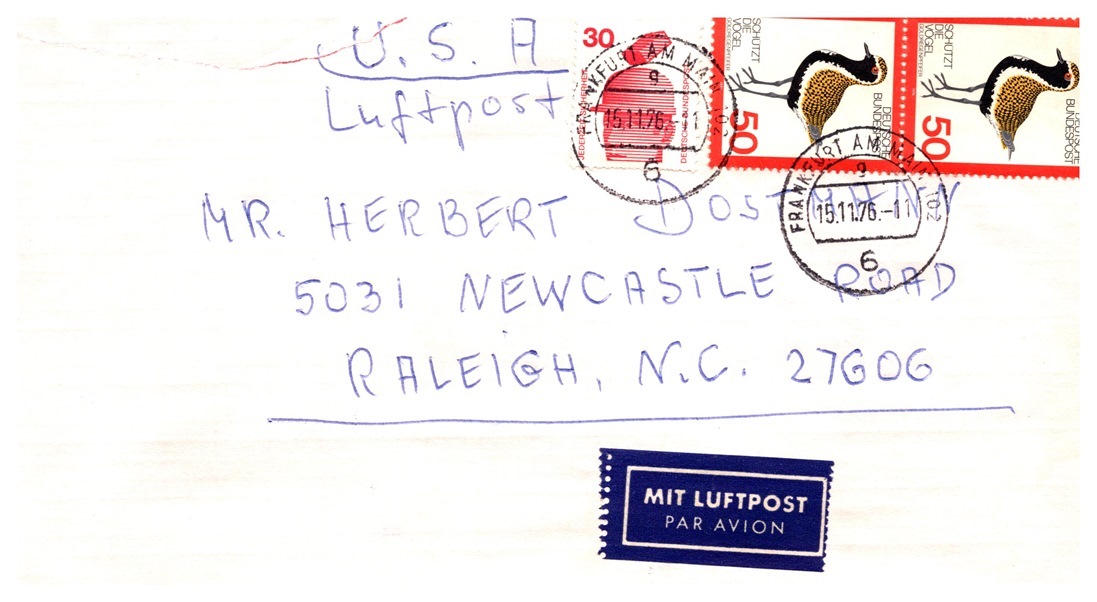 U. S. A
Luftpost
30
JEDERZEIT SICHERHEIT
DEUTSCHE BUNDESPOST
SCHÜTZT
DIE
VÖGEL
GOLDREGENPFEIFER
50
DEUTSCHE
BUNDESPOST
SCHÜTZT
DIE
VÖGEL
GOLDREGENPFEIFER
50
DEUTSCHE
BUNDESPOST
FRANKFURT AM MAIN 102
a
15.11.76.-11
6
FRANKFURT AM MAIN 102
a
15.11.76.-11
6
MR. HERBERT DOSTMANN
5031 NEWCASTLE ROAD
RALEIGH, N.C. 27606
MIT LUFTPOST
PAR AVION